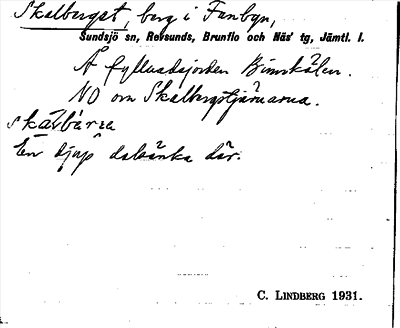 Skalberget, berg i Fanbyn,
Sundsjö sn, Revsunds, Brunflo och Näs' tg, Jämtl. l.
Å fyllnadsjorden Binnkälen.
NO om Skalbergstjärnarna.
En djup dalsänka där.
C. LINDBERG 1931.